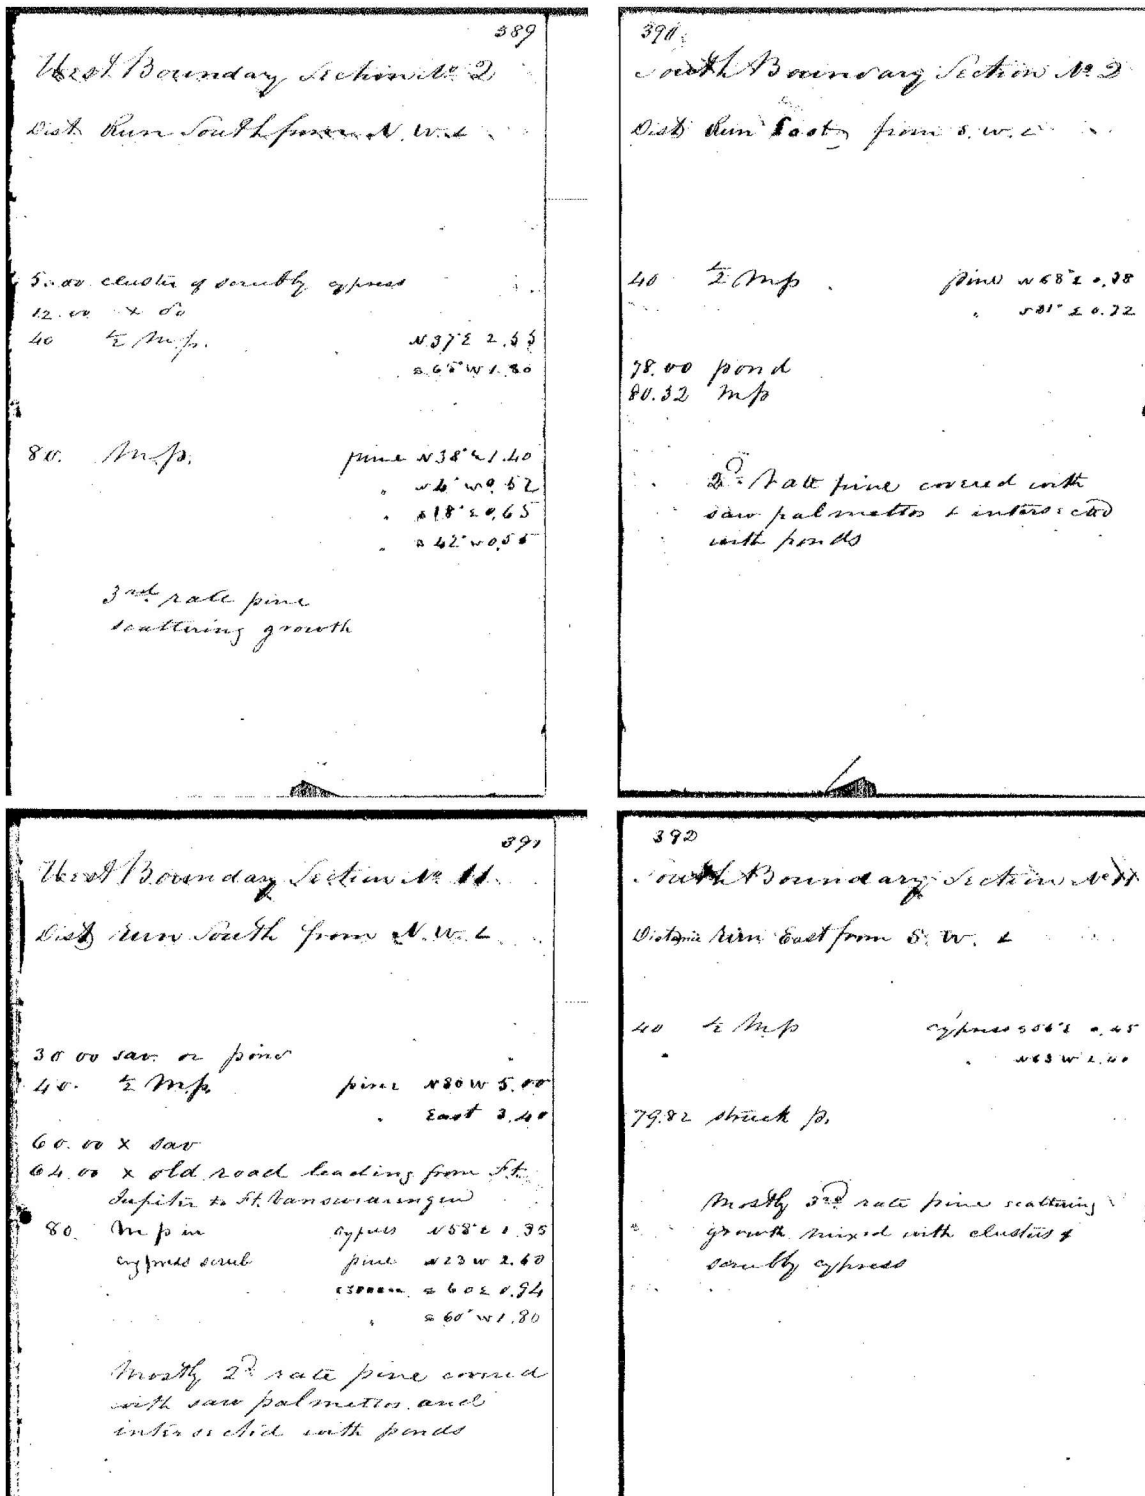 389
West Boundary Section No. 2
Dist Run South from N. W. c
5.00 cluster of scrubby cypress
12.00 x do
40 ½ M.p. N37°E 2.55
S.65°W 1.80
80. M.p. pine N38°E 1.40
" N4°W 0.52
" S18°E 0.65
" S42°W 0.55
3rd rate pine
scattering growth
390
South Boundary Section No 2
Dist Run East from S. W. c
40 ½ M p pine N68°E 0.38
" S81°E 0.72
78.00 pond
80.32 M p
2d rate pine covered with
saw palmettos & intersected
with ponds
391
West Boundary Section No 11
Dist run South from N. W. c
30 00 sav. or pond
40. ½ M.p. pine N80W 5.00
" East 3.40
60.00 x sav
64.00 x old road leading from Ft.
Jupiter to Ft. Vanswaringen
80. M p in cypress N58°E 1.35
cypress scrub pine N23W 2.60
S 60E 0.94
" S 60°W 1.80
Mostly 2d rate pine covered
with saw palmettos and
intersected with ponds
392
South Boundary Section No 11
Distance run East from S. W. c
40 ½ M p cypress S56°E 0.45
" N63W 2.40
79.82 struck p.
Mostly 3rd rate pine scattering
growth mixed with clusters of
scrubby cypress